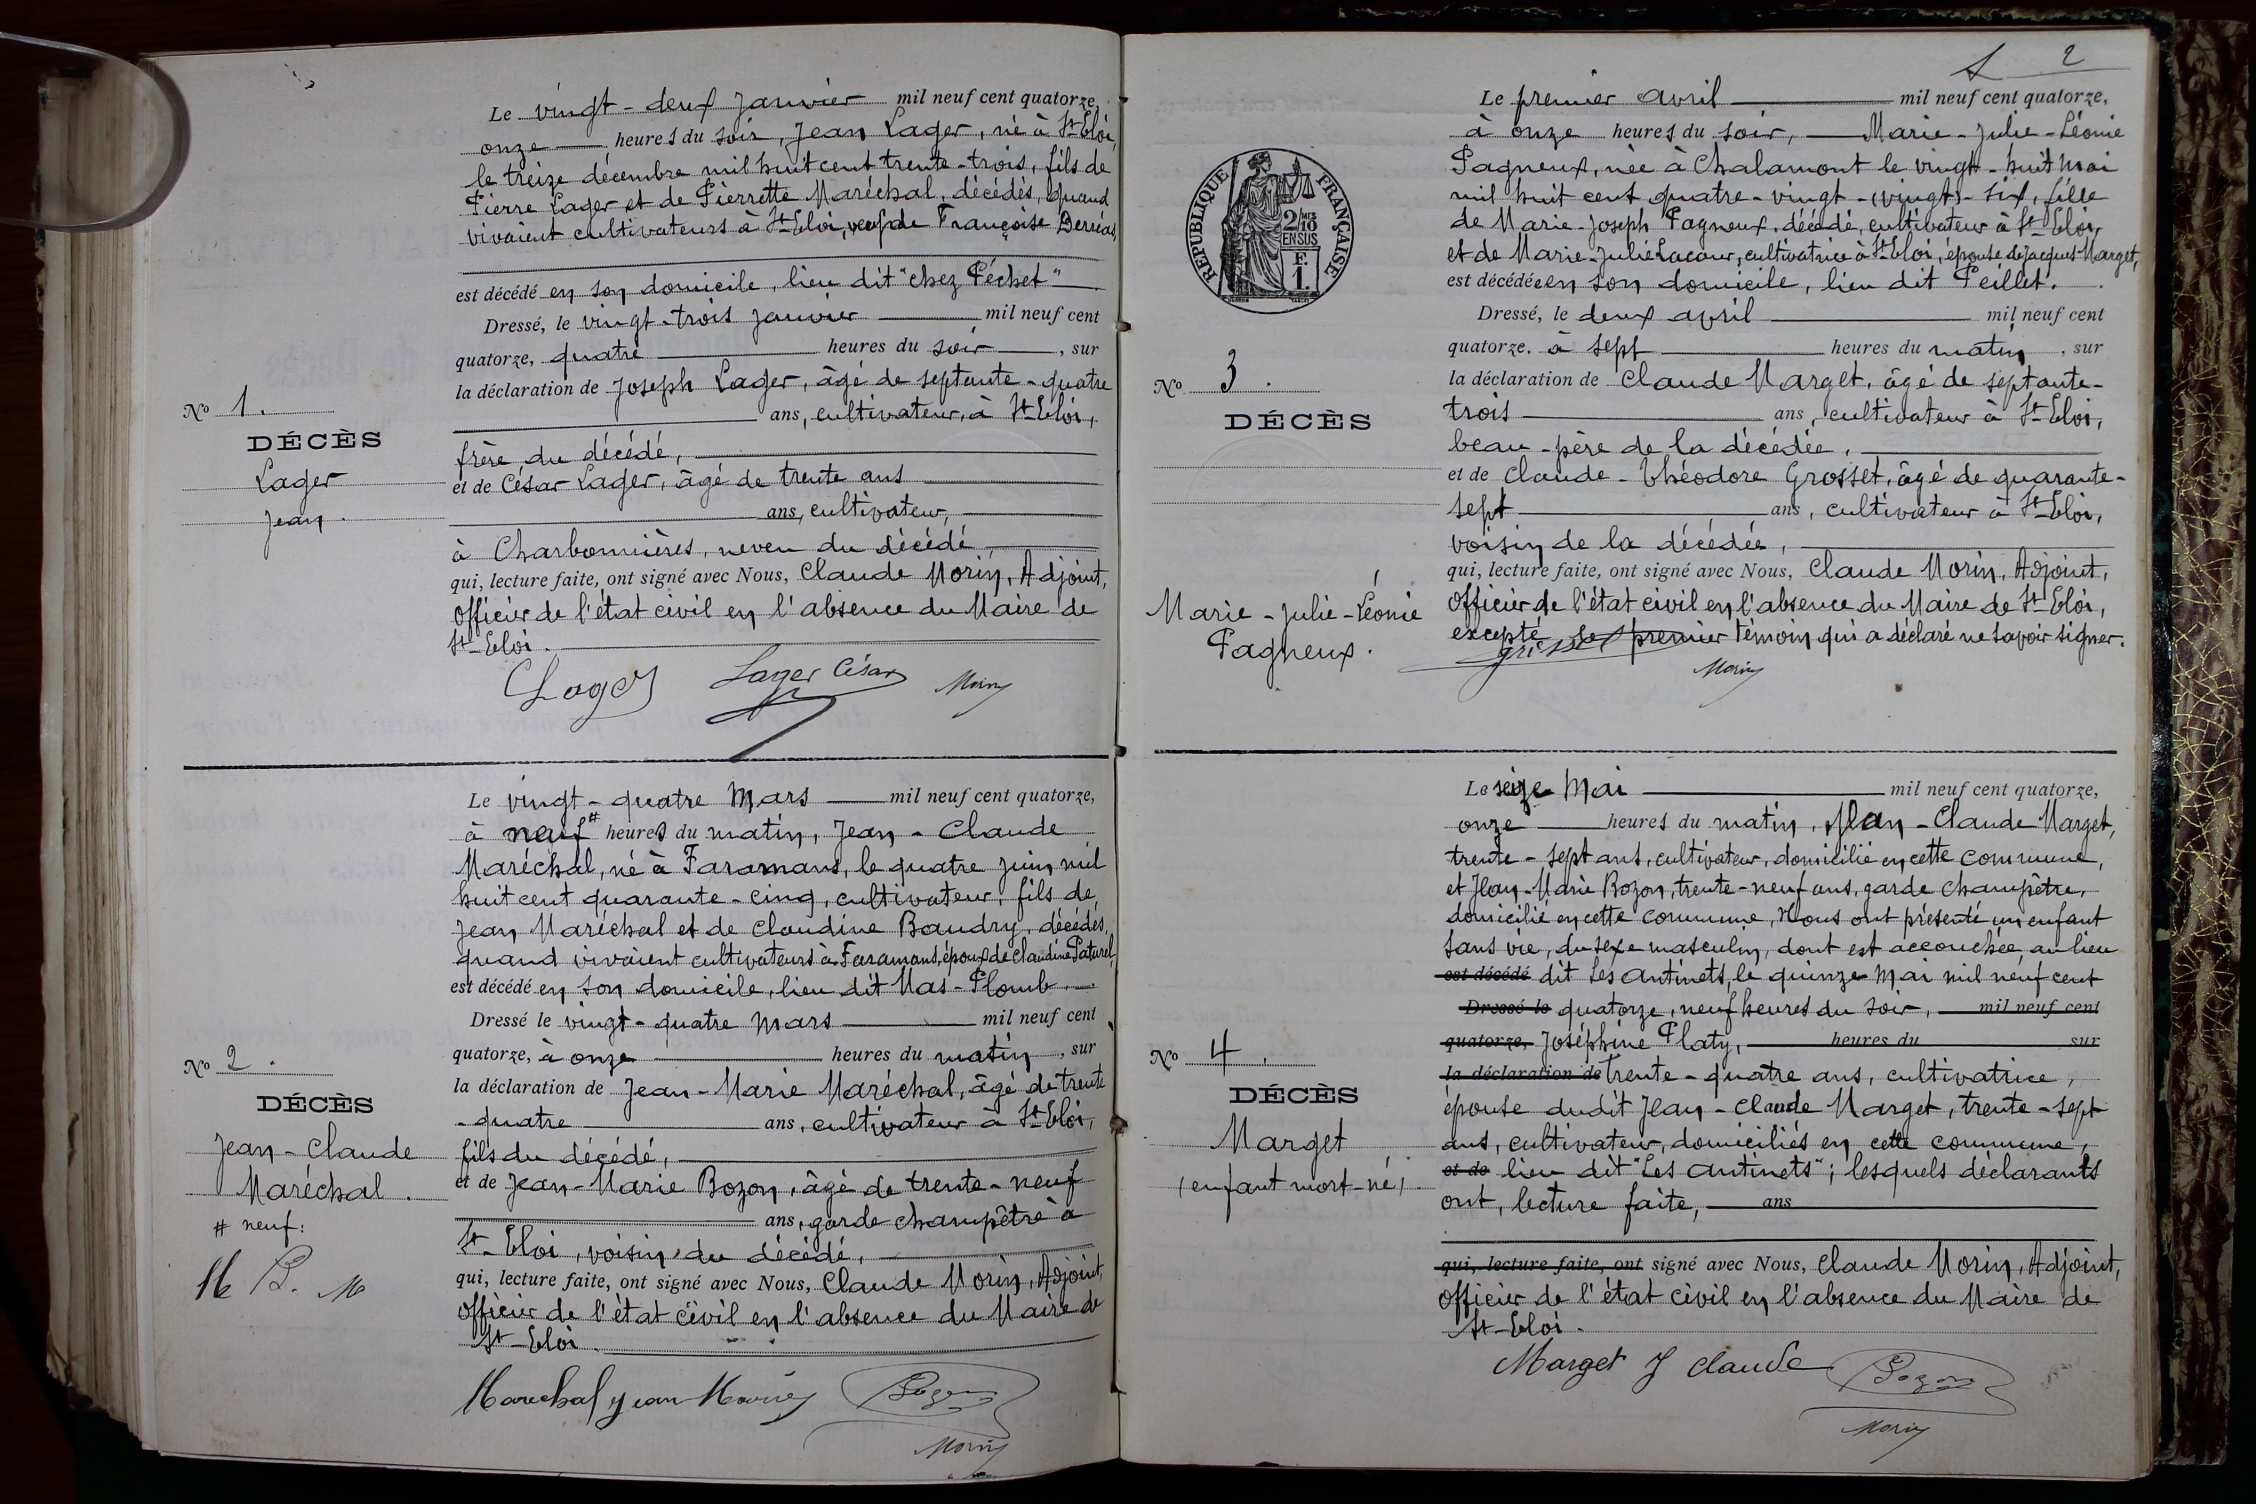 Le vingt-deux Janvier mil neuf cent quatorze,
onze heures du soir, Jean Lager, né à St Eloi,
le treize décembre mil huit cent trente-trois, fils de
Pierre Lager et de Pierrette Maréchal, décédés, quand
vivaient cultivateurs à St Eloi, veuf de Françoise
est décédé en son domicile, lieu dit "chez Péchet"
Dressé, le vingt-trois janvier mil neuf cent
quatorze, quatre heures du soir, sur
la déclaration de Joseph Lager, âgé de septante-quatre
ans, cultivateur, à St Eloi,
frère du décédé,
et de César Lager, âgé de trente ans
ans, cultivateur,
à Charbonnières, neveu du décédé,
qui, lecture faite, ont signé avec Nous, Claude Morin, Adjoint,
officier de l'état civil en l'absence du Maire de
St-Eloi.
Lager Lager César Morin
No 1.
DÉCÈS
Lager
Jean.
Le vingt-quatre Mars mil neuf cent quatorze,
à neuf # heures du matin, Jean-Claude
Maréchal, né à Faramans, le quatre juin mil
huit cent quarante-cinq, cultivateur, fils de
Jean Maréchal et de Claudine Baudry, décédés,
quand vivaient cultivateurs à Faramans, époux de Claudine Paturel,
est décédé en son domicile, lieu dit Mas-Plomb.
Dressé le vingt-quatre mars mil neuf cent
quatorze, à onze heures du matin, sur
la déclaration de Jean-Marie Maréchal, âgé de trente
-quatre ans, cultivateur à St-Eloi,
fils du décédé,
et de Jean-Marie Bozon, âgé de trente-neuf
ans, garde champêtre à
St-Eloi, voisin du décédé,
qui, lecture faite, ont signé avec Nous, Claude Morin, Adjoint,
officier de l'état civil en l'absence du Maire de
St-Eloi.
Marechal Jean Marie Bozon
Morin
No 2.
DÉCÈS
Jean-Claude
Maréchal.
# neuf:
M B. M
2
Le premier avril mil neuf cent quatorze,
à onze heures du soir, Marie-Julie-Léonie
Pagneux, née à Chalamont le vingt-huit Mai
mil huit cent quatre-vingt-(vingt)-six, fille
de Marie-Joseph Pagneux, décédé, cultivateur à St-Eloi,
et de Marie-Julie Lacour, cultivatrice à St-Eloi, épouse de Jacques Marget,
est décédée en son domicile, lieu dit Peillet.
Dressé, le deux avril mil neuf cent
quatorze. à sept heures du matin, sur
la déclaration de Claude Marget, âgé de septante-
trois ans, cultivateur à St-Eloi,
beau-père de la décédée,
et de Claude-Théodore Grosset, âgé de quarante-
sept ans, cultivateur à St-Eloi,
voisin de la décédée,
qui, lecture faite, ont signé avec Nous, Claude Morin, Adjoint,
officier de l'état civil en l'absence du Maire de St-Eloi,
excepté le premier témoin qui a déclaré ne savoir signer.
Morin
RÉPUBLIQUE FRANÇAISE
2/10 MES
EN SUS
F.
1.
No 3.
DÉCÈS
Marie-Julie-Léonie
Pagneux.
Le seize Mai mil neuf cent quatorze,
onze heures du matin, Jean-Claude Marget,
trente-sept ans, cultivateur, domicilié en cette commune,
et Jean-Marie Bozon, trente-neuf ans, garde champêtre,
domicilié en cette commune, Nous ont présenté un enfant
sans vie, du sexe masculin, dont est accouchée, au lieu
est décédé dit Les Antinets, le quinze Mai mil neuf cent
Dressé le quatorze, neuf heures du soir, mil neuf cent
quatorze, Joséphine Platy, heures du sur
la déclaration de trente-quatre ans, cultivatrice,
épouse dudit Jean-Claude Marget, trente-sept
ans, cultivateur, domiciliés en cette commune,
et de lieu dit "Les Antinets"; lesquels déclarants
ont, lecture faite, ans
qui, lecture faite, ont signé avec Nous, Claude Morin, Adjoint,
officier de l'état civil en l'absence du Maire de
St-Eloi.
Marget J Claude Bozon
Morin
No 4.
DÉCÈS
Marget
(enfant mort-né).